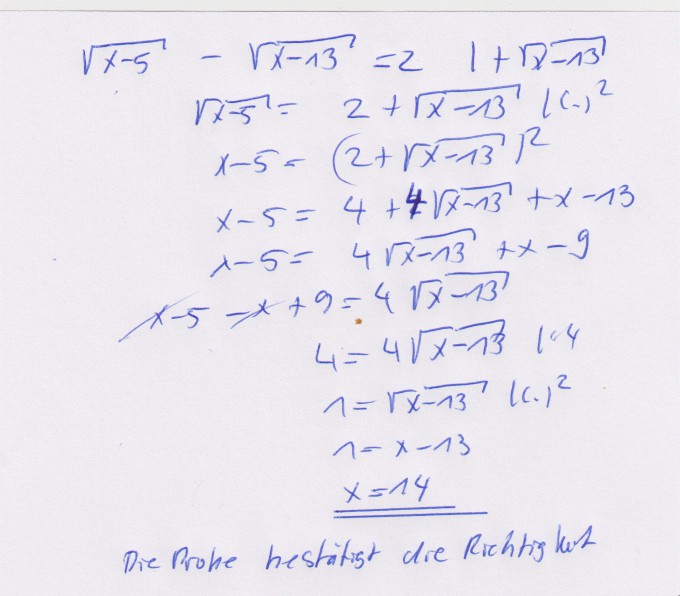 √x-5 - √x-13 = 2 | + √x-13
√x-5 = 2 + √x-13 | (.)²
x-5 = (2 + √x-13)²
x-5 = 4 + 4√x-13 + x - 13
x-5 = 4√x-13 + x - 9
x-5 - x + 9 = 4√x-13
4 = 4√x-13 | :4
1 = √x-13 | (.)²
1 = x - 13
x = 14
Die Probe bestätigt die Richtigkeit